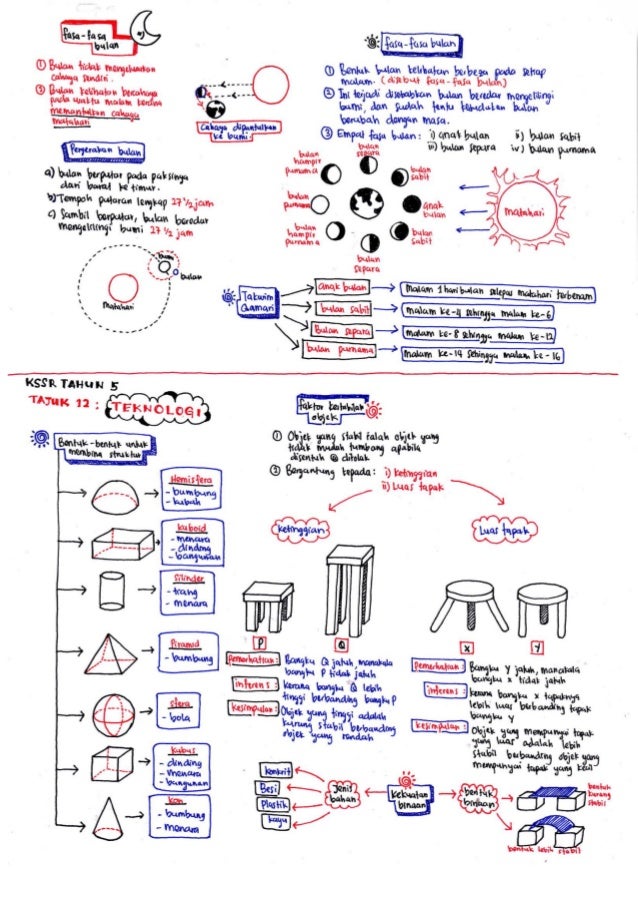 fasa-fasa
bulan
① Bulan tidak mengeluarkan
cahaya sendiri.
② Bulan kelihatan bercahaya
pada waktu malam kerana
memantulkan cahaya
matahari
Cahaya dipantulkan
ke bumi
Pergerakan bulan
a) bulan berputar pada paksinya
dari barat ke timur.
b) Tempoh putaran lengkap 27 1/2 jam
c) Sambil berputar, bulan beredar
mengelilingi bumi 27 1/2 jam
bumi
bulan
matahari
fasa-fasa bulan
① Bentuk bulan kelihatan berbeza pada setiap
malam. (disebut fasa-fasa bulan)
② Ini terjadi disebabkan bulan beredar mengelilingi
bumi, dan sudah tentu kedudukan bulan
berubah dengan masa.
③ Empat fasa bulan: i) anak bulan ii) bulan sabit
iii) bulan separa iv) bulan purnama
bulan
separa
bulan
hampir
purnama
bulan
sabit
bulan
purnama
anak
bulan
matahari
bulan
hampir
purnama
bulan
sabit
bulan
separa
Takwim
Qamari
anak bulan
malam 1 haribulan selepas matahari terbenam
bulan sabit
malam ke-4 sehingga malam ke-6
Bulan separa
malam ke-8 sehingga malam ke-12
bulan purnama
malam ke-14 sehingga malam ke-16
KSSR TAHUN 5
TAJUK 12: TEKNOLOGI
Bentuk-bentuk untuk
membina struktur
Hemisfera
- bumbung
- kubah
kuboid
- menara
- dinding
- bangunan
Silinder
- tiang
- menara
Piramid
- bumbung
sfera
- bola
kubus
- dinding
- menara
- bangunan
kon
- bumbung
- menara
faktor kestabilan
objek
① Objek yang stabil ialah objek yang
tidak mudah tumbang apabila
disentuh @ ditolak
② Bergantung kepada: i) ketinggian
ii) Luas tapak
ketinggian
Luas tapak
P
Q
Pemerhatian: Bangku Q jatuh, manakala
bangku P tidak jatuh
inferens: kerana bangku Q lebih
tinggi berbanding bangku P
kesimpulan: Objek yang tinggi adalah
kurang stabil berbanding
objek yang rendah
X
Y
Pemerhatian: Bangku Y jatuh, manakala
bangku X tidak jatuh
inferens: kerana bangku X tapaknya
lebih luas berbanding tapak
bangku Y
kesimpulan: Objek yang mempunyai tapak
yang luas adalah lebih
stabil berbanding objek yang
mempunyai tapak yang kecil
kekuatan
binaan
Jenis
bahan
konkrit
Besi
Plastik
kayu
bentuk
binaan
bentuk
kurang
stabil
bentuk lebih stabil